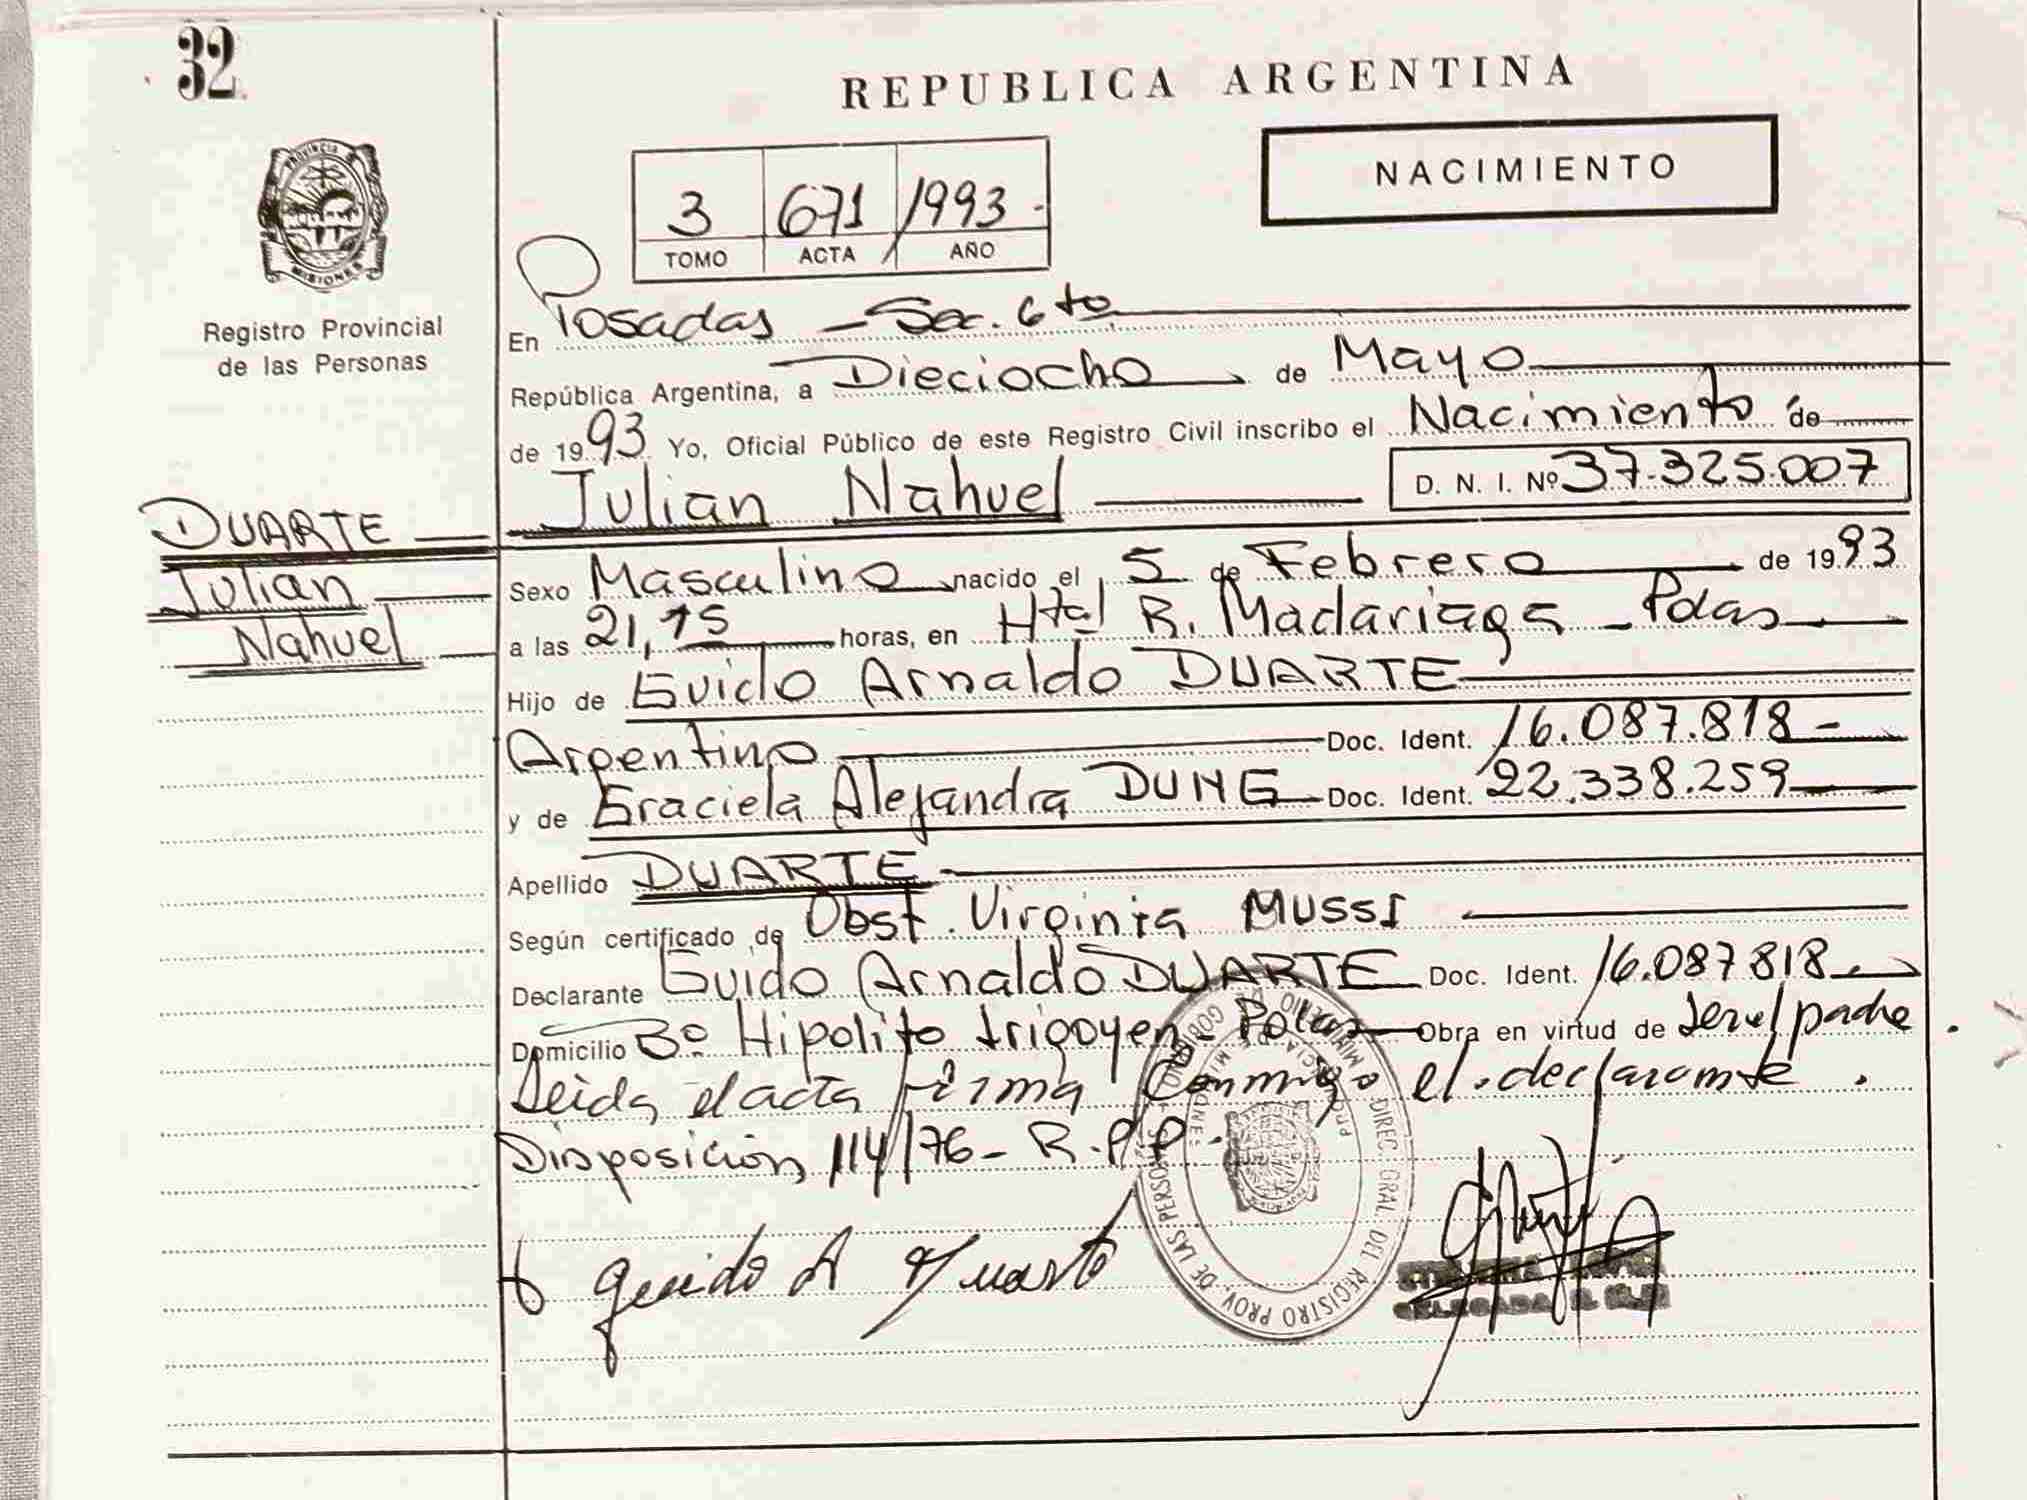 32
REPUBLICA ARGENTINA
NACIMIENTO
3 671 1993-
TOMO ACTA AÑO
PROVINCIA
MISIONES
Registro Provincial
de las Personas
En Posadas - Sec. 6ta
República Argentina, a Dieciocho de Mayo
de 1993 Yo, Oficial Público de este Registro Civil inscribo el Nacimiento de
Julian Nahuel D. N. I. Nº 37.325.007
DUARTE
Julian
Nahuel
Sexo Masculino nacido el 5 de Febrero de 1993
a las 21,15 horas, en Htal R. Madariaga - Pdas
Hijo de Guido Arnaldo DUARTE
Argentino Doc. Ident. 16.087.818-
y de Graciela Alejandra DUNG Doc. Ident. 22.338.259
Apellido DUARTE
Según certificado de Obst. Virginia MUSSI
Declarante Guido Arnaldo DUARTE Doc. Ident. 16.087818
Domicilio Bº Hipolito Irigoyen - Pdas Obra en virtud de ser el padre.
Leida el acta firma conmigo el declarante.
Disposición 114/76 - R.P.P.
Guido A Duarte
MINISTERIO DE GOBIERNO DIREC. GRAL. DEL REGISTRO PROV. DE LAS PERSONAS
PROVINCIA MISIONES
DELEGADA